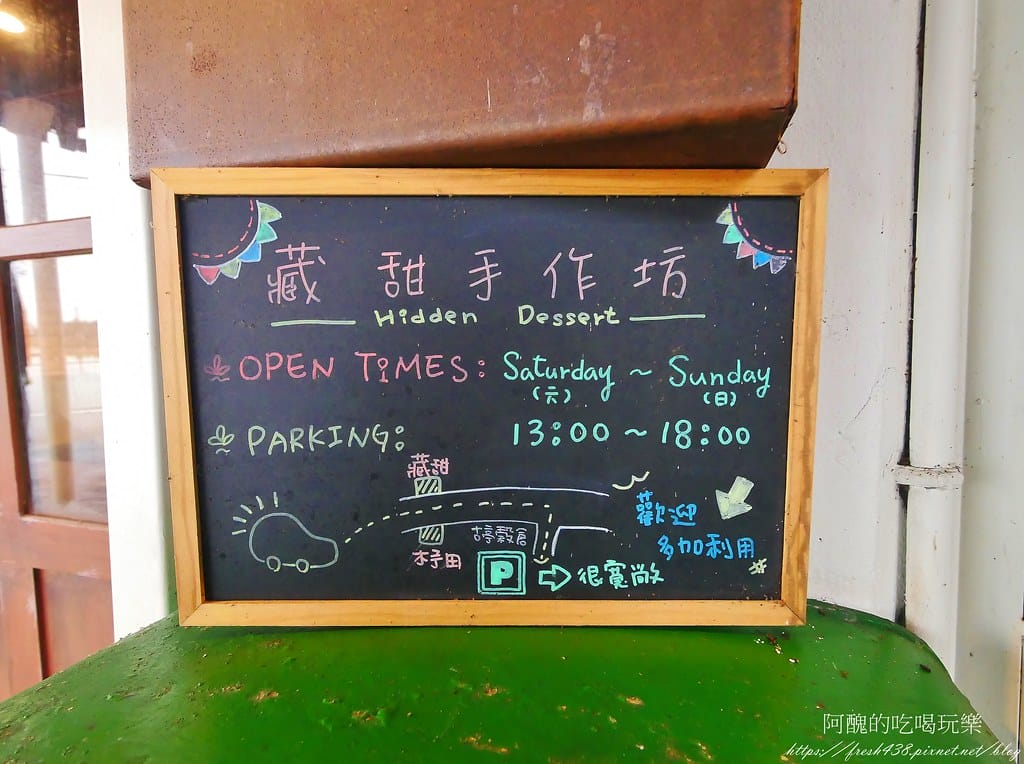 藏甜手作坊
Hidden Dessert
OPEN TIMES: Saturday ~ Sunday
(六) (日)
PARKING: 13:00 ~ 18:00
藏甜
歡迎
多加利用
穀倉
木子田
P
很寬敞
阿醜的吃喝玩樂
https://fresh438.pixnet.net/blog